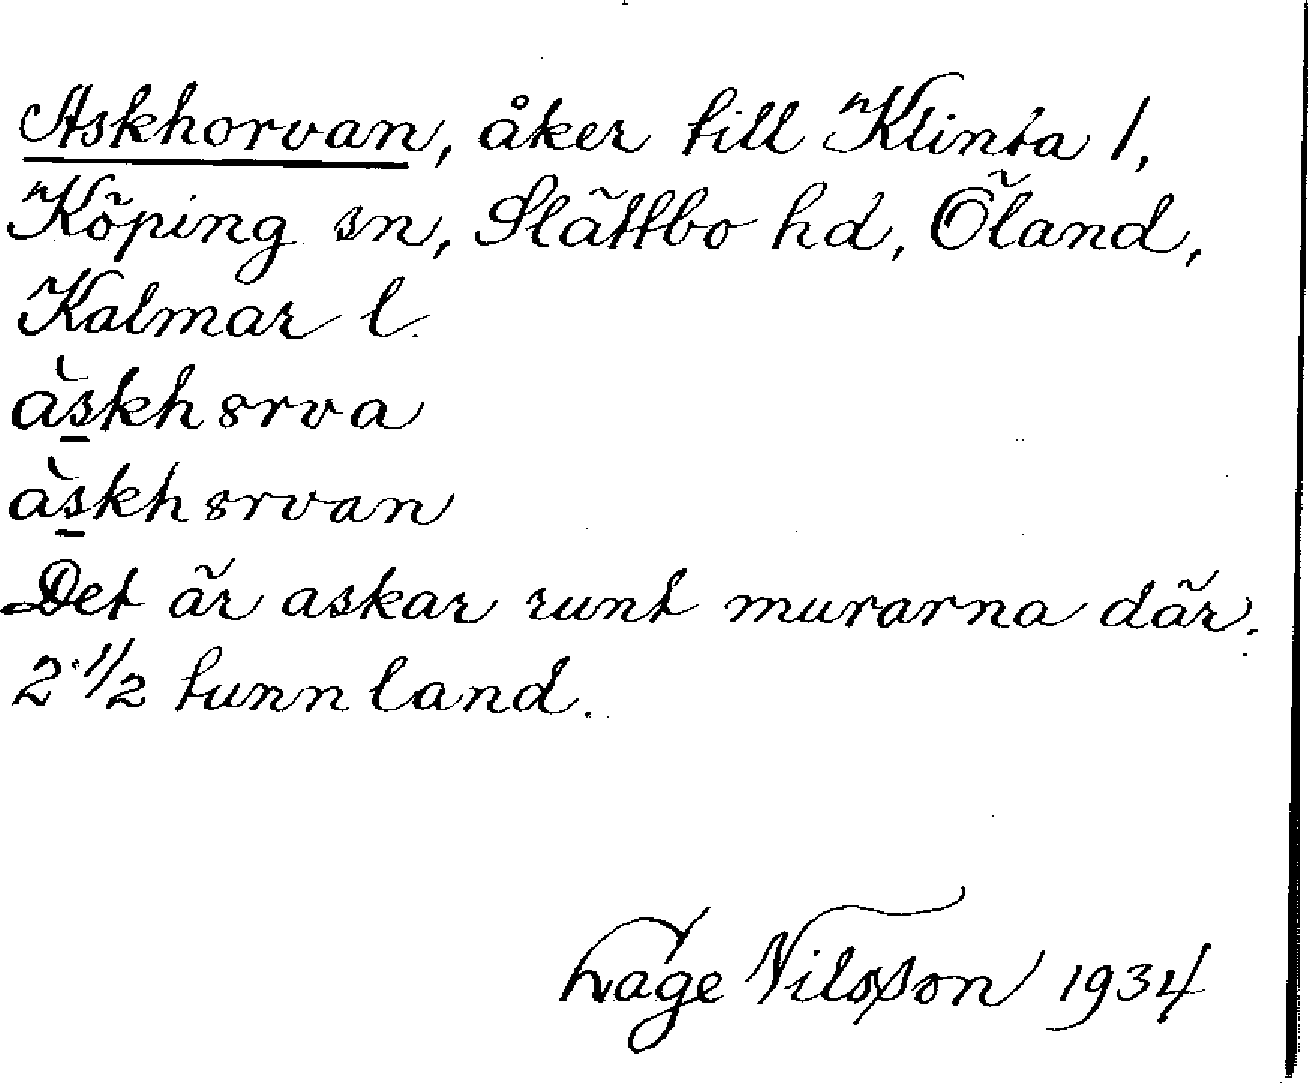 Askhorvan, åker till Klinta 1,
Köping sn, Slättbo hd, Öland,
Kalmar l.
àskhorva
àskhorvan
Det är askar runt murarna där.
2 1/2 tunnland.
Tage Nilsson 1934